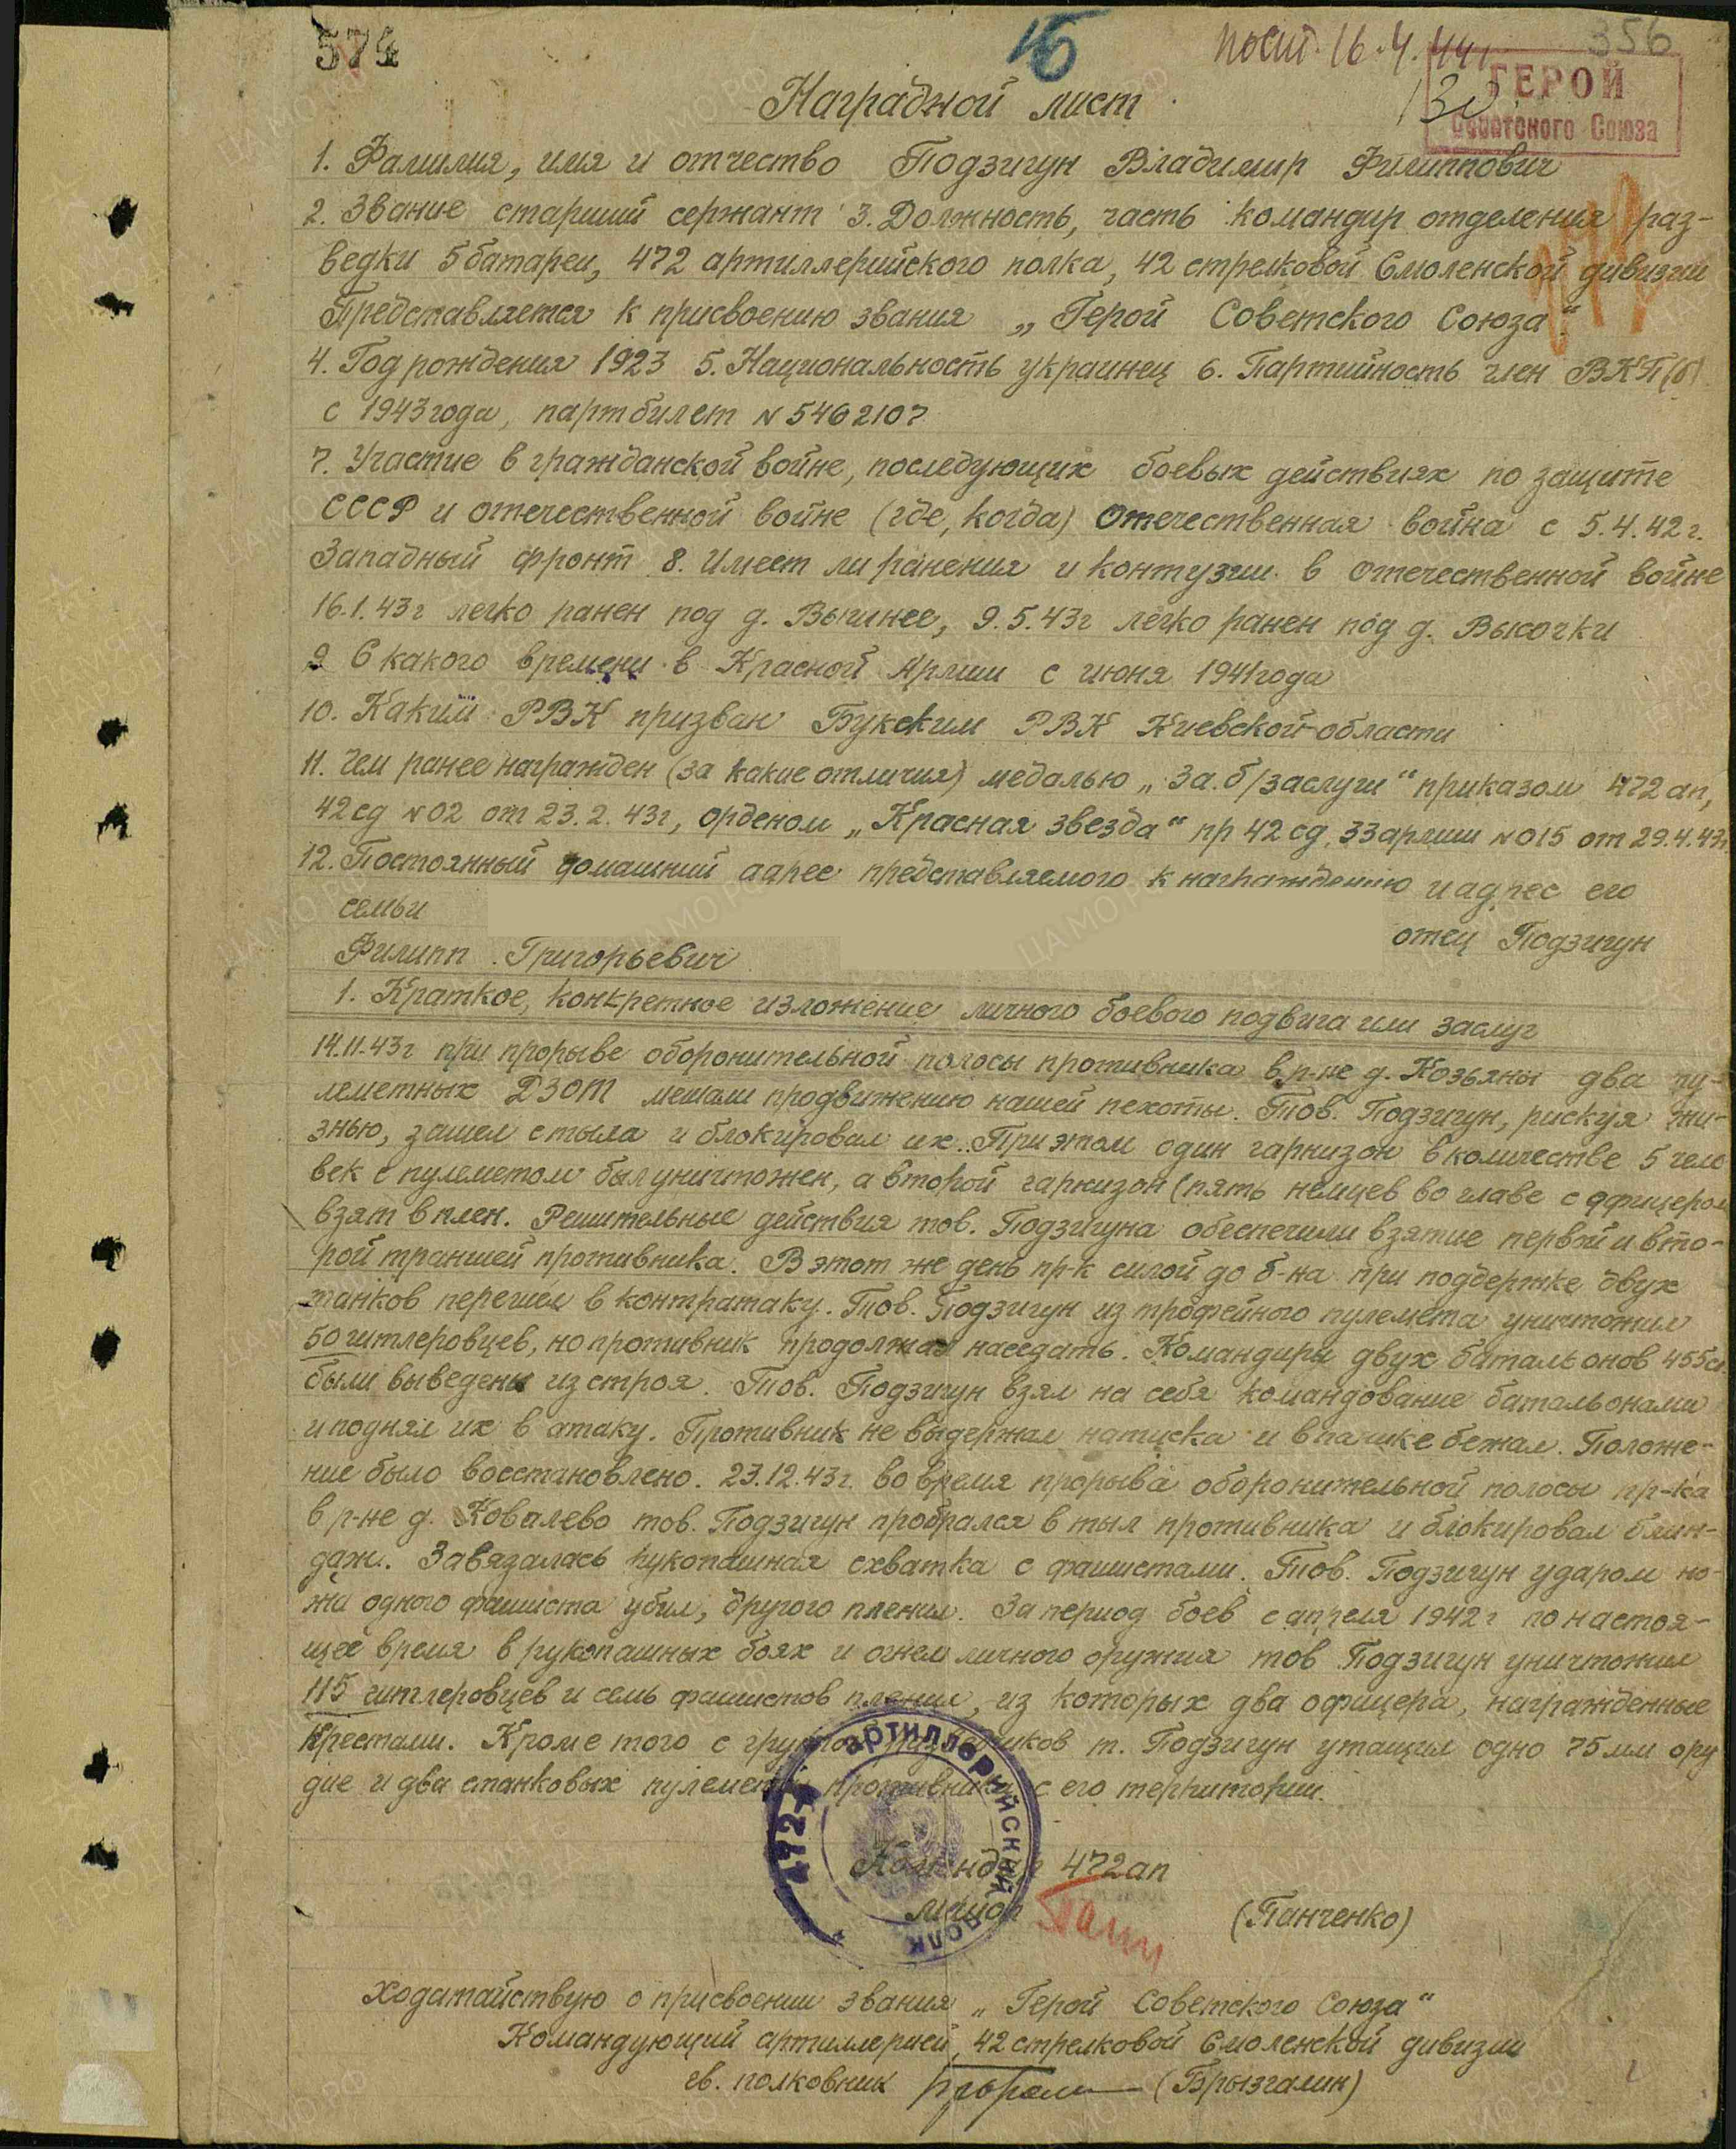 574
16
посм. 16.4.44г
356
130
ГЕРОЙ
Советского Союза
Наградной лист
1. Фамилия, имя и отчество Подзигун Владимир Филиппович
2. Звание старший сержант 3. Должность, часть командир отделения раз-
ведки 5 батареи, 472 артиллерийского полка, 42 стрелковой Смоленской дивизии
Представляется к присвоению звания „Герой Советского Союза“
4. Год рождения 1923 5. Национальность украинец 6. Партийность член ВКП(б)
с 1943 года, партбилет N 5462107
7. Участие в гражданской войне, последующих боевых действиях по защите
СССР и отечественной войне (где, когда) Отечественная война с 5.4.42 г.
Западный фронт 8. Имеет ли ранения и контузии в отечественной войне
16.1.43г легко ранен под д. Вычинее, 9.5.43г легко ранен под д. Высочки
9 С какого времени в Красной Армии с июня 1941 года
10. Каким РВК призван Букским РВК Киевской области
11. Чем ранее награжден (за какие отличия) медалью „За б/заслуги“ приказом 472 ап,
42 сд N 02 от 23.2.43г, орденом „Красная звезда“ пр 42 сд, 33 армии N 015 от 29.4.43г
12. Постоянный домашний адрес представляемого к награждению и адрес его
семьи
отец Подзигун
Филипп Григорьевич
1. Краткое, конкретное изложение личного боевого подвига или заслуг
14.11.43г при прорыве оборонительной полосы противника в р-не д. Козьяны два пу-
леметных ДЗОТ мешали продвижению нашей пехоты. Тов. Подзигун, рискуя жи-
знью, зашел с тыла и блокировал их. При этом один гарнизон в количестве 5 чело
век с пулеметом был уничтожен, а второй гарнизон (пять немцев во главе с офицером
взят в плен. Решительные действия тов. Подзигуна обеспечили взятие первой и вто-
рой траншей противника. В этот же день пр-к силой до б-на при поддержке двух
танков перешел в контратаку. Тов. Подзигун из трофейного пулемета уничтожил
50 гитлеровцев, но противник продолжал наседать. Командиры двух батальонов 455сп
были выведены из строя. Тов. Подзигун взял на себя командование батальонами
и поднял их в атаку. Противник не выдержал натиска и в панике бежал. Положе-
ние было восстановлено. 23.12.43г. во время прорыва оборонительной полосы пр-ка
в р-не д. Ковалево тов. Подзигун пробрался в тыл противника и блокировал блин-
даж. Завязалась рукопашная схватка с фашистами. Тов. Подзигун ударом но-
жа одного фашиста убил, другого пленил. За период боев с апреля 1942г по настоя-
щее время в рукопашных боях и огнем личного оружия тов Подзигун уничтожил
115 гитлеровцев и семь фашистов пленил, из которых два офицера, награжденные
крестами. Кроме того с группой разведчиков т. Подзигун утащил одно 75 мм ору
дие и два станковых пулемета противника с его территории.
472-й артиллерийский полк
Командир 472 ап
майор (Панченко)
Ходатайствую о присвоении звания „Герой Советского Союза“
Командующий артиллерией 42 стрелковой Смоленской дивизии
гв. полковник (Брызгалин)